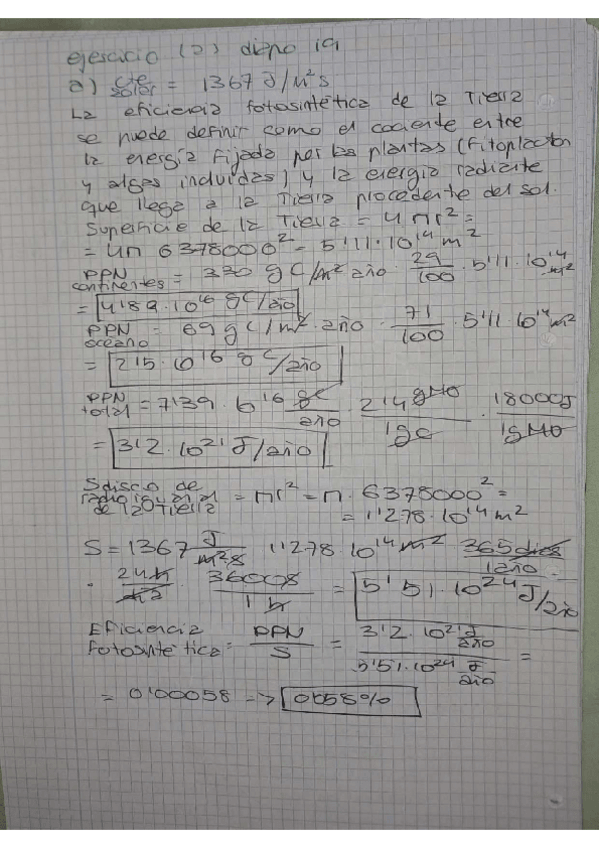 ejercicio (2) diapo 19
a) Cte solar = 1367 J/m²s
La eficiencia fotosintética de la Tierra
se puede definir como el cociente entre
la energía fijada por las plantas (fitoplacton
y algas incluidas) y la energía radiante
que llega a la Tierra procedente del sol.
Superficie de la Tierra = 4πr² =
= 4π 6378000² = 5'11·10¹⁴ m²
PPN continentes = 330 gC/m² año · 29/100 · 5'11·10¹⁴ m²
= 4'89·10¹⁶ gC/año
PPN oceano = 69 gC/m²·año · 71/100 · 5'11·10¹⁴ m²
= 2'5·10¹⁶ gC/año
PPN total = 7'39·10¹⁶ gC/año · 2'4 gMO/1gC · 18000J/1gMO
= 3'2·10²¹ J/año
S disco de radio igual al de la Tierra = πr² = π·6378000² =
= 1'278·10¹⁴ m²
S = 1367 J/m²s 1'278·10¹⁴ m² 365 días/1año ·
· 24h/día · 3600s/1h = 5'51·10²⁴ J/año
Eficiencia fotosintética = PPN/S = 3'2·10²¹ J/año / 5'51·10²⁴ J/año =
= 0'00058 -> 0'058%